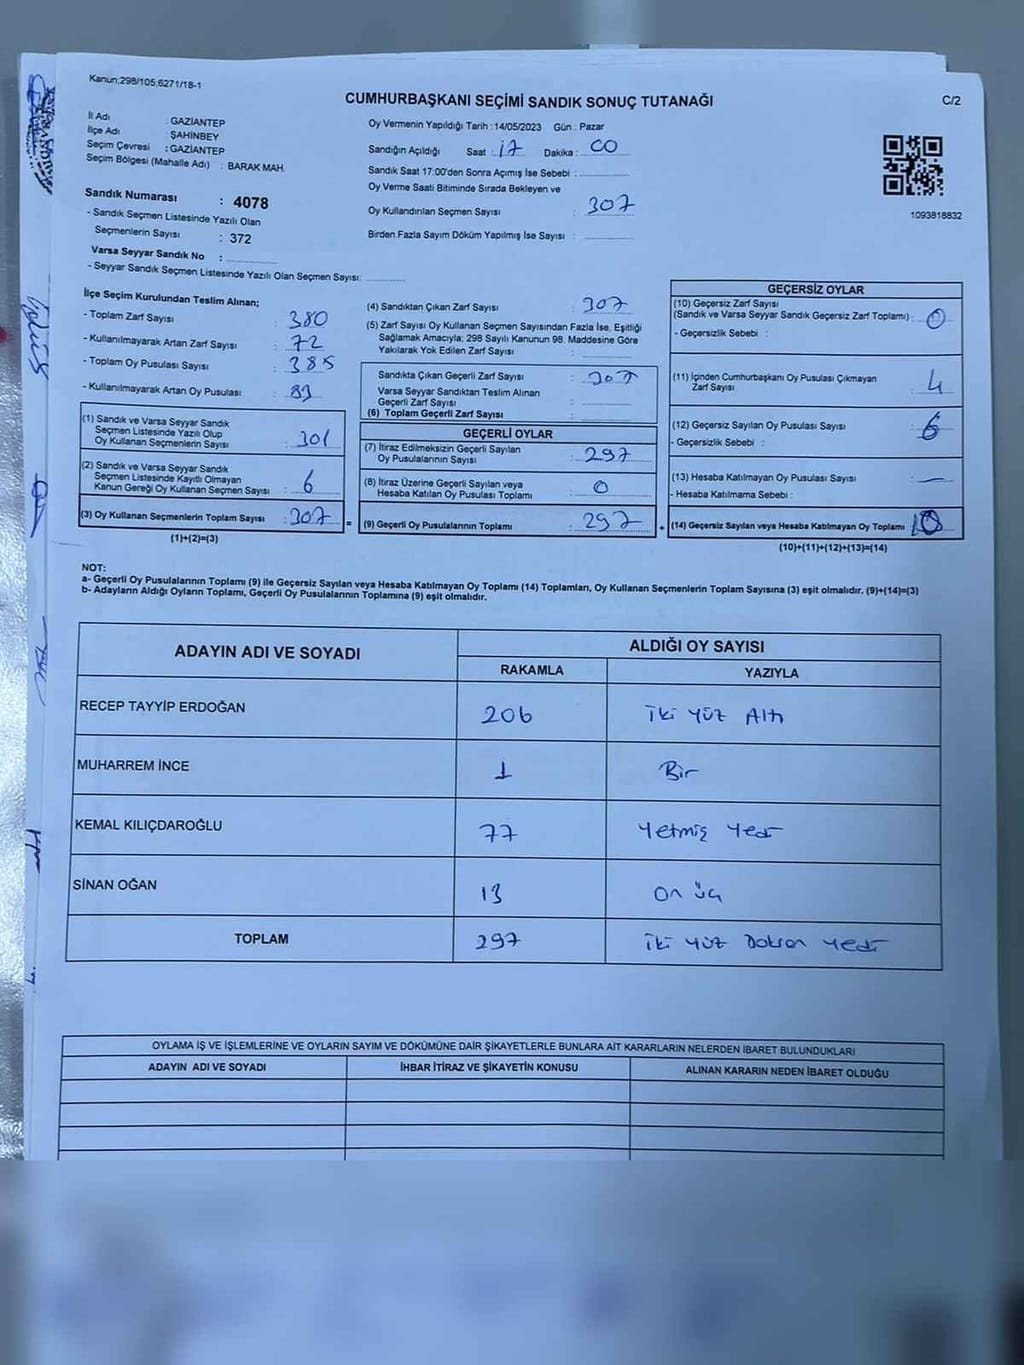 Kanun:298/105;6271/18-1
C/2
CUMHURBAŞKANI SEÇİMİ SANDIK SONUÇ TUTANAĞI
İl Adı : GAZİANTEP
İlçe Adı : ŞAHİNBEY
Seçim Çevresi : GAZİANTEP
Seçim Bölgesi (Mahalle Adı) : BARAK MAH.
Sandık Numarası : 4078
- Sandık Seçmen Listesinde Yazılı Olan
Seçmenlerin Sayısı : 372
Varsa Seyyar Sandık No :
- Seyyar Sandık Seçmen Listesinde Yazılı Olan Seçmen Sayısı:
Oy Vermenin Yapıldığı Tarih :14/05/2023 Gün : Pazar
Sandığın Açıldığı Saat : 17 Dakika : 00
Sandık Saat 17:00'den Sonra Açımış İse Sebebi :
Oy Verme Saati Bitiminde Sırada Bekleyen ve
Oy Kullandırılan Seçmen Sayısı : 307
Birden Fazla Sayım Döküm Yapılmış İse Sayısı :
1093818832
İlçe Seçim Kurulundan Teslim Alınan;
- Toplam Zarf Sayısı : 380
- Kullanılmayarak Artan Zarf Sayısı : 72
- Toplam Oy Pusulası Sayısı : 385
- Kullanılmayarak Artan Oy Pusulası : 83
(1) Sandık ve Varsa Seyyar Sandık
Seçmen Listesinde Yazılı Olup
Oy Kullanan Seçmenlerin Sayısı : 301
(2) Sandık ve Varsa Seyyar Sandık
Seçmen Listesinde Kayıtlı Olmayan
Kanun Gereği Oy Kullanan Seçmen Sayısı : 6
(3) Oy Kullanan Seçmenlerin Toplam Sayısı : 307 =
(1)+(2)=(3)
(4) Sandıktan Çıkan Zarf Sayısı : 307
(5) Zarf Sayısı Oy Kullanan Seçmen Sayısından Fazla İse, Eşitliği
Sağlamak Amacıyla; 298 Sayılı Kanunun 98. Maddesine Göre
Yakılarak Yok Edilen Zarf Sayısı :
Sandıkta Çıkan Geçerli Zarf Sayısı : 307
Varsa Seyyar Sandıktan Teslim Alınan
Geçerli Zarf Sayısı :
(6) Toplam Geçerli Zarf Sayısı :
GEÇERLİ OYLAR
(7) İtiraz Edilmeksizin Geçerli Sayılan
Oy Pusulalarının Sayısı : 297
(8) İtiraz Üzerine Geçerli Sayılan veya
Hesaba Katılan Oy Pusulası Toplamı : 0
(9) Geçerli Oy Pusulalarının Toplamı : 297 +
GEÇERSİZ OYLAR
(10) Geçersiz Zarf Sayısı
(Sandık ve Varsa Seyyar Sandık Geçersiz Zarf Toplamı) : 0
- Geçersizlik Sebebi :
(11) İçinden Cumhurbaşkanı Oy Pusulası Çıkmayan
Zarf Sayısı : 4
(12) Geçersiz Sayılan Oy Pusulası Sayısı : 6
- Geçersizlik Sebebi :
(13) Hesaba Katılmayan Oy Pusulası Sayısı : —
- Hesaba Katılmama Sebebi :
(14) Geçersiz Sayılan veya Hesaba Katılmayan Oy Toplamı : 10
(10)+(11)+(12)+(13)=(14)
NOT:
a- Geçerli Oy Pusulalarının Toplamı (9) ile Geçersiz Sayılan veya Hesaba Katılmayan Oy Toplamı (14) Toplamları, Oy Kullanan Seçmenlerin Toplam Sayısına (3) eşit olmalıdır. (9)+(14)=(3)
b- Adayların Aldığı Oyların Toplamı, Geçerli Oy Pusulalarının Toplamına (9) eşit olmalıdır.
ADAYIN ADI VE SOYADI
ALDIĞI OY SAYISI
RAKAMLA YAZIYLA
RECEP TAYYİP ERDOĞAN 206 İki Yüz Altı
MUHARREM İNCE 1 Bir
KEMAL KILIÇDAROĞLU 77 Yetmiş Yedi
SİNAN OĞAN 13 On üç
TOPLAM 297 İki Yüz Doksan Yedi
OYLAMA İŞ VE İŞLEMLERİNE VE OYLARIN SAYIM VE DÖKÜMÜNE DAİR ŞİKAYETLERLE BUNLARA AİT KARARLARIN NELERDEN İBARET BULUNDUKLARI
ADAYIN ADI VE SOYADI İHBAR İTİRAZ VE ŞİKAYETİN KONUSU ALINAN KARARIN NEDEN İBARET OLDUĞU